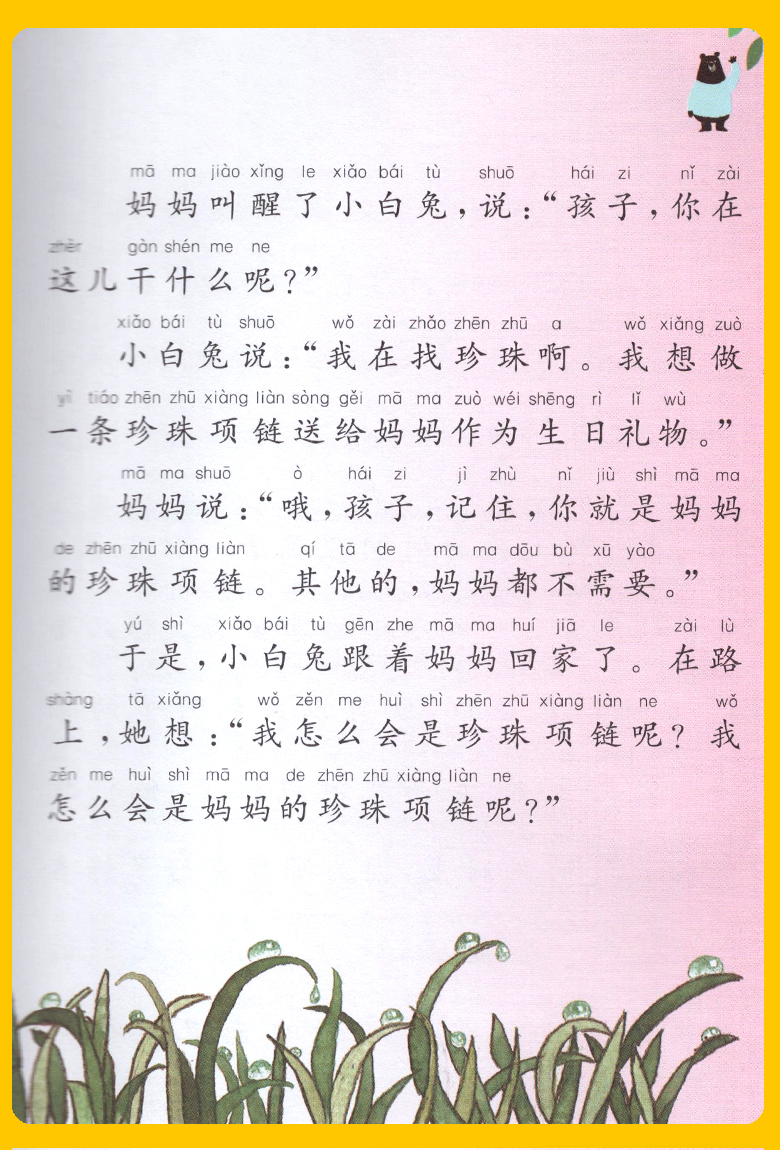 mā ma jiào xǐng le xiǎo bái tù shuō hái zi nǐ zài
妈妈叫醒了小白兔，说：“孩子，你在
zhèr gàn shén me ne
这儿干什么呢？”
xiǎo bái tù shuō wǒ zài zhǎo zhēn zhū a wǒ xiǎng zuò
小白兔说：“我在找珍珠啊。我想做
yì tiáo zhēn zhū xiàng liàn sòng gěi mā ma zuò wéi shēng rì lǐ wù
一条珍珠项链送给妈妈作为生日礼物。”
mā ma shuō ò hái zi jì zhù nǐ jiù shì mā ma
妈妈说：“哦，孩子，记住，你就是妈妈
de zhēn zhū xiàng liàn qí tā de mā ma dōu bù xū yào
的珍珠项链。其他的，妈妈都不需要。”
yú shì xiǎo bái tù gēn zhe mā ma huí jiā le zài lù
于是，小白兔跟着妈妈回家了。在路
shàng tā xiǎng wǒ zěn me huì shì zhēn zhū xiàng liàn ne wǒ
上，她想：“我怎么会是珍珠项链呢？我
zěn me huì shì mā ma de zhēn zhū xiàng liàn ne
怎么会是妈妈的珍珠项链呢？”